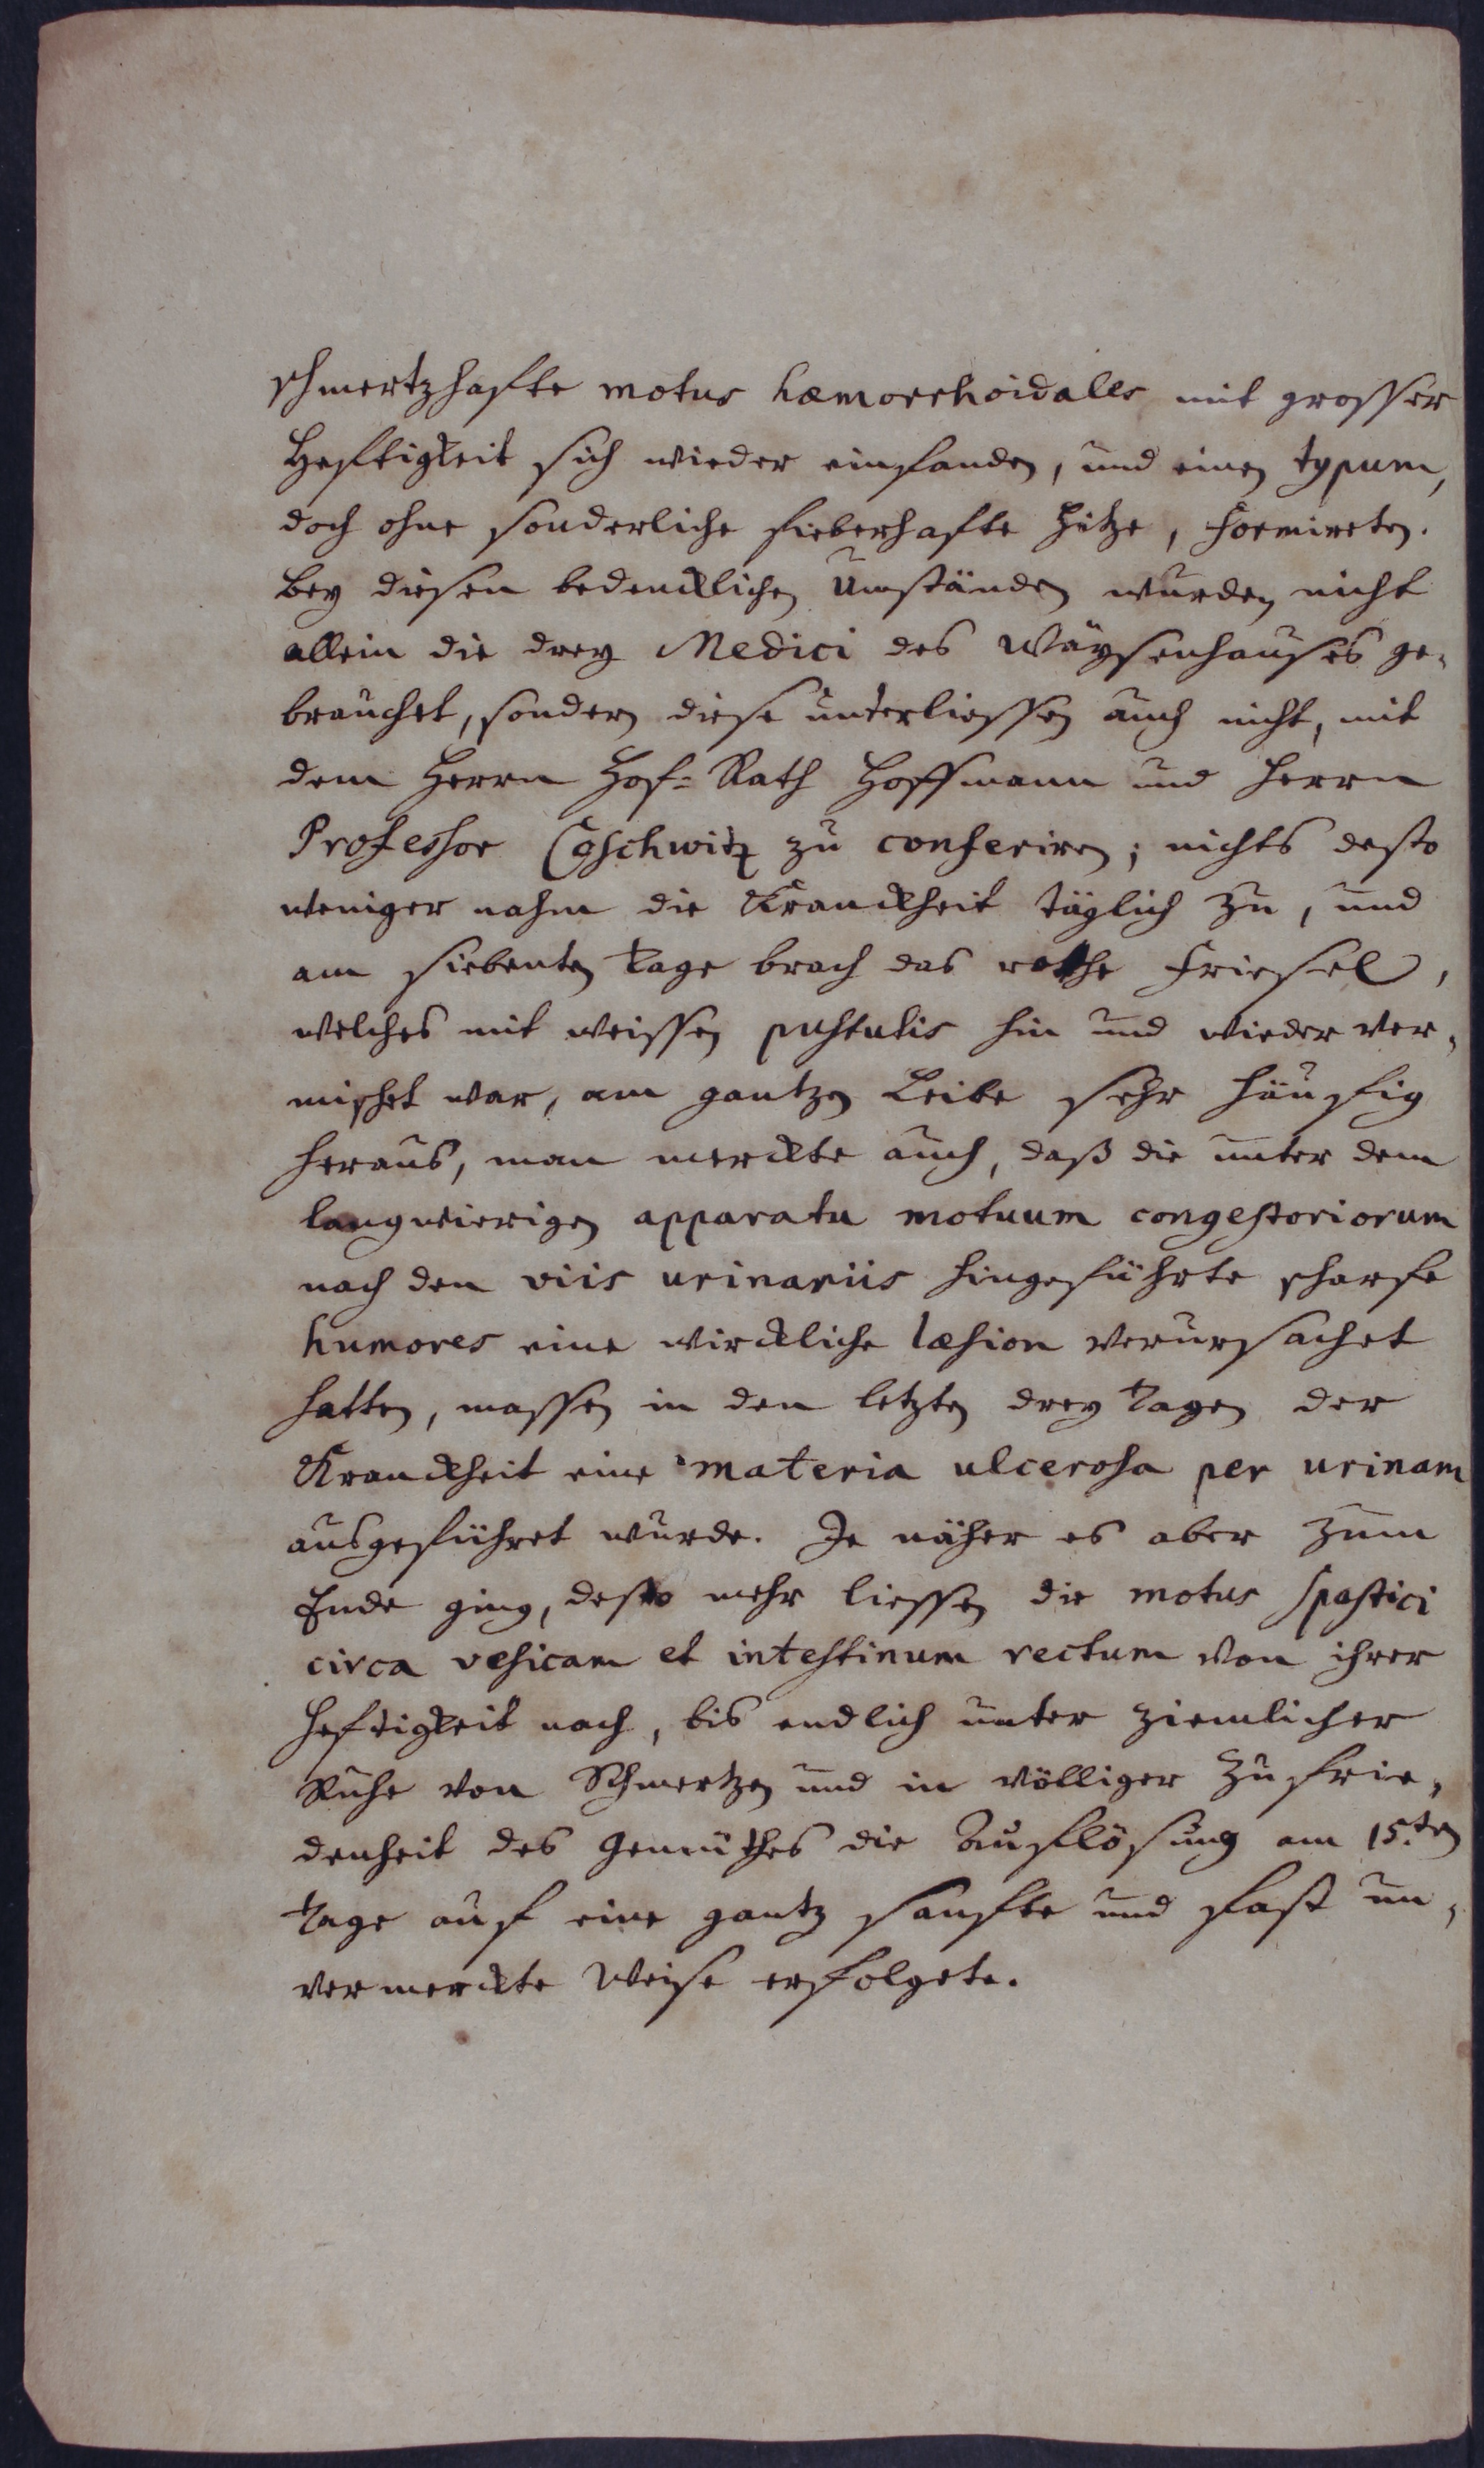 schmertzhafte motus hæmorrhoidales mit grosser
Hefftigkeit sich wieder einfanden, und einen typum,
doch ohne sonderliche fieberhafte Hitze, formireten.
Bey diesen bedencklichen Umständen wurden nicht
allein die drey Medici des Wäysenhauses ge-
brauchet, sondern diese unterliessen auch nicht, mit
dem Herrn Hof-Rath Hoffmann und Herrn
Professor Coschwitz zu conferiren; nichts desto
weniger nahm die Kranckheit täglich zu, und
am siebenten Tage brach das rothe Friesel,
welches mit weissen pustulis hin und wieder ver-
mischet war, am gantzen Leibe sehr häuffig
heraus, man merckte auch, daß die unter dem
langwierigen apparatu motuum congestoriorum
nach den viis urinariis hingeführte scharfe
humores eine wirckliche læsion verursachet
hatten, massen in den letzten drey Tagen der
Kranckheit eine materia ulcerosa per urinam
ausgeführet wurde. Je näher es aber zum
Ende ging, desto mehr liessen die motus spastici
circa vesicam et intestinum rectum von ihrer
Heftigkeit nach, bis endlich unter ziemlicher
Ruhe von Schmertzen und in völliger Zufrie-
denheit des Gemüthes die Auflösung am 15.ten
Tage auf eine gantz sanfte und fast un-
vermerckte Weise erfolgete.